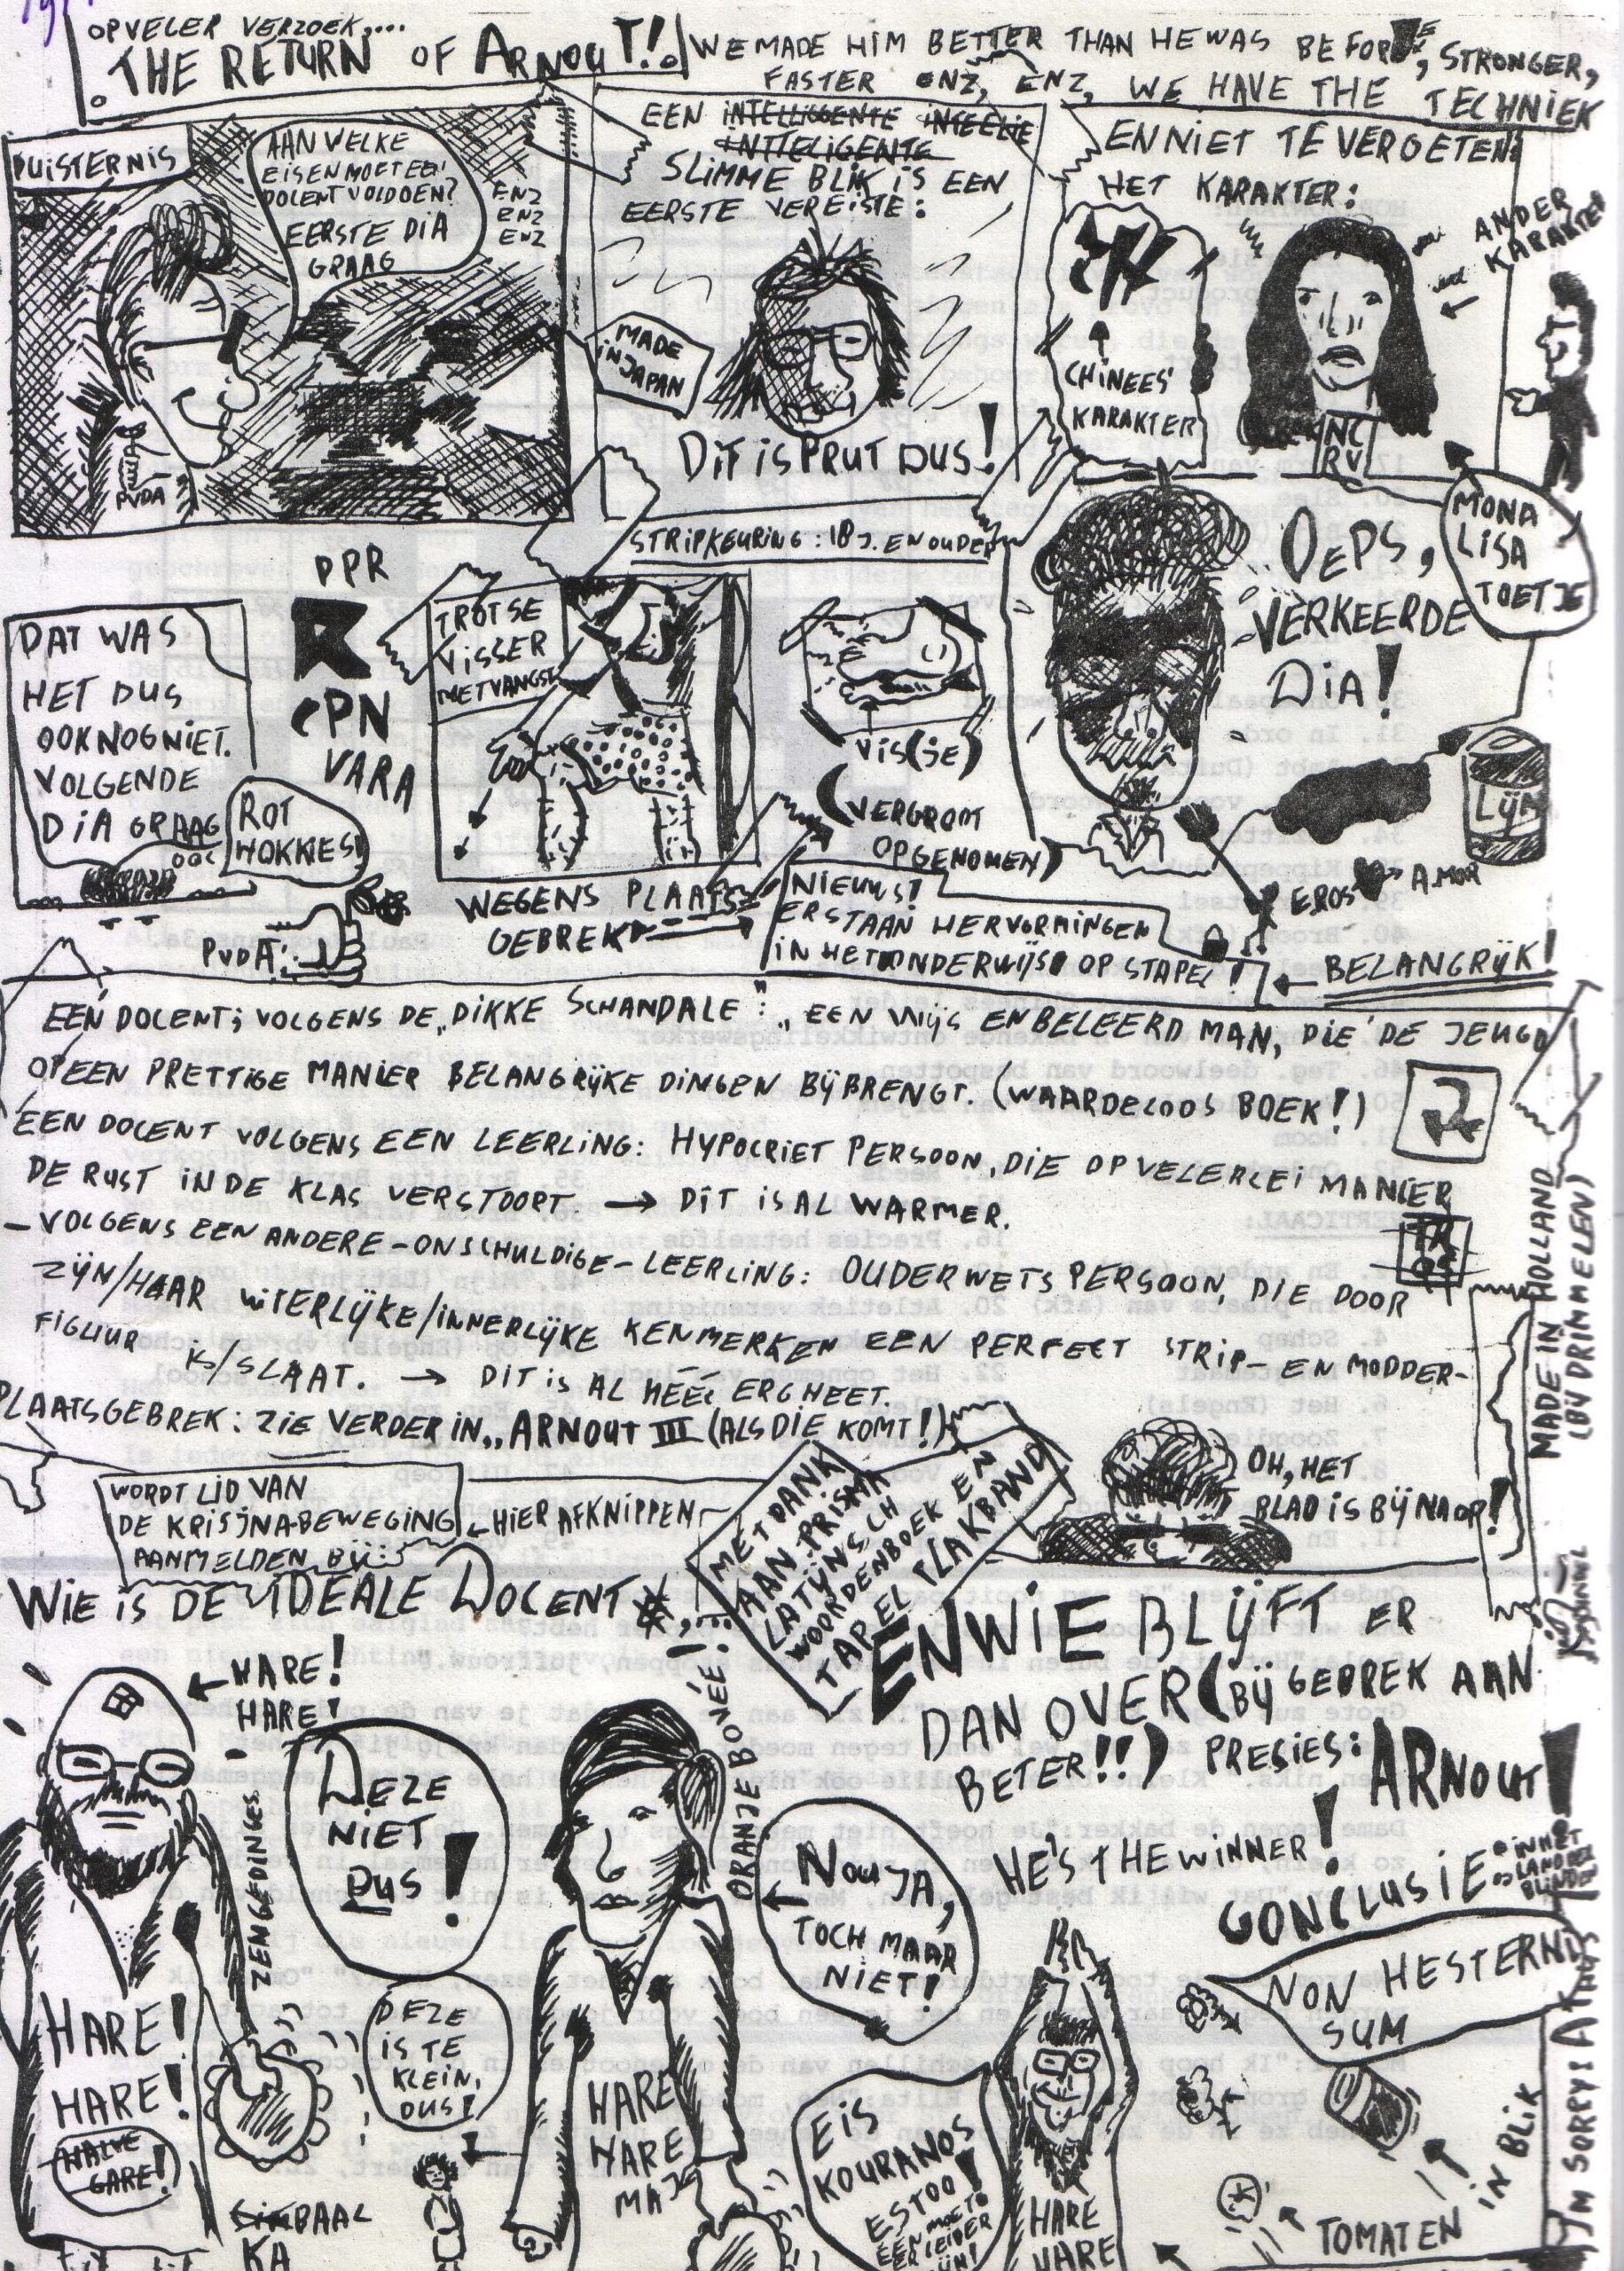 OP VELER VERZOEK,...
THE RETURN OF ARNOUT!!
WE MADE HIM BETTER THAN HE WAS BEFORE, STRONGER,
FASTER ENZ, ENZ, WE HAVE THE TECHNIEK
DUISTERNIS
AAN WELKE
EISEN MOET EEN
DOCENT VOLDOEN?
EERSTE DIA
GRAAG
ENZ
ENZ
ENZ
PVDA
EEN INTELLIGGENTE INTEELIE
INTTELIGENTE
SLIMME BLIK IS EEN
EERSTE VEREISTE:
MADE
IN JAPAN
DIT IS PRUT DUS!
EN NIET TE VERGETEN:
HET KARAKTER:
CHINEES
KARAKTER
ANDER
KARAKTER
NC
RV
MONA
LISA
TOETJE
DAT WAS
HET DUS
OOK NOG NIET.
VOLGENDE
DIA GRAAG
ROT
HOKKIES!
PPR
CPN
VARA
PVDA
STRIPKEURING: 18 J. EN OUDER
TROTSE
VISSER
MET VANGST
VIS(JE)
(VERGROOT
OPGENOMEN)
WEGENS PLAATS
GEBREK
OEPS,
VERKEERDE
DIA!
LIJM
EROS
AMOR
NIEUWS!
ER STAAN HERVORMINGEN
IN HET ONDERWIJS OP STAPEL!
BELANGRIJK!
EEN DOCENT; VOLGENS DE „DIKKE SCHANDALE": „EEN WIJS EN BELEERD MAN, DIE DE JEUGD
OP EEN PRETTIGE MANIER BELANGRIJKE DINGEN BIJBRENGT. (WAARDELOOS BOEK!)
EEN DOCENT VOLGENS EEN LEERLING: HYPOCRIET PERSOON, DIE OP VELERLEI MANIER
DE RUST IN DE KLAS VERSTOORT. → DIT IS AL WARMER.
- VOLGENS EEN ANDERE - ONSCHULDIGE - LEERLING: OUDERWETS PERSOON, DIE DOOR
ZIJN/HAAR UITERLIJKE/INNERLIJKE KENMERKEN EEN PERFECT STRIP- EN MODDER-
FIGUUR IS/SLAAT. → DIT IS AL HÉÉL ERG HEET.
PLAATSGEBREK: ZIE VERDER IN „ARNOUT III (ALS DIE KOMT!)
MADE IN HOLLAND
(BIJ DRIMMELEN)
WORDT LID VAN
DE KRISJNA-BEWEGING
AANMELDEN BIJ:
HIER AFKNIPPEN
MET DANK
AAN PRISMA
LATIJNSCH
WOORDENBOEK EN
TAPEL PLAKBAND
OH, HET
BLAD IS BIJNA OP!
WIE IS DE IDEALE DOCENT
HARE!
HARE!
ZENGEDINGES
DEZE
NIET
DUS!
HARE!
HARE!
HALVE
GARE!
DEZE
IS TE
KLEIN,
DUS!
BAAL
KA
ORANJE BOVEN!
NOU JA,
TOCH MAAR
NIET!
HARE
HARE
MAJ
EN WIE BLIJFT ER
DAN OVER (BIJ GEBREK AAN
BETER!!) PRESIES: ARNOUT!
HE'S THE WINNER!
CONCLUSIE:
IN HET
LAND DER
BLINDEN
NON HESTERNI
SUM
EIS
KOURANOS
ESTOO!
EEN MOET
ER LEIDER
ZIJN!
HARE
HARE
TOMATEN
IN BLIK
I'M SORRY